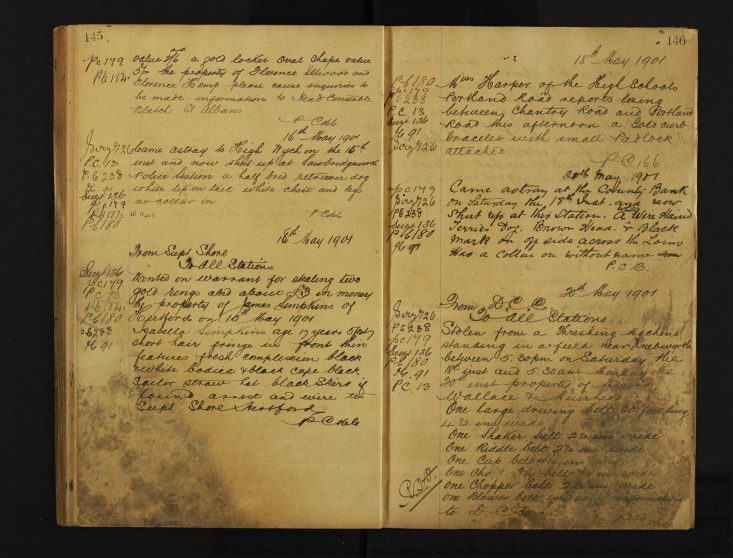 145
value 7/6 a gold locket Oval Shape value
5/- the property of Florence Ellwood and
Florence Kemp please cause enquiries to
be made information to Head Constable
St Albans
PC 166
16th May 1901
Came astray to High Wych on the 15th
inst and now shut up at Sawbridgeworth
Police Station a half bred retrieve dog
white tip on tail white chest and legs
no collar on
PC 166
PC 179
PC 13
PC 238
H 91
Sergt 136
PC 179
PC 180
16th May 1901
From Supt Shore
To All Stations
Wanted on warrant for stealing two
gold rings and about £3 in money
the property of James Simpkins of
Hertford on 15th May 1901
Isabella Simpkins age 17 years
short hair fringe in front thin
features fresh complexion black
& white bodice & black cape black
Sailor straw hat black Skirt if
found arrest and wire to
Supt Shore Hertford
Sergt 136
PC 179
PC 13
PC 180
H 91
146
18th May 1901
Miss Harper of the High Schools
Portland Road reports losing
between Chantry Road and Portland
Road this afternoon a Gold curb
bracelet with small Padlock
attached
PC 166
PC 180
PC 179
PC 238
PC 13
Sergt 136
H 91
20th May 1901
Came astray at the County Bank
on Saturday the 18th Inst. and now
Shut up at this Station. A Wire Haired
Terrier Dog. Brown Head. & Black
Mark on off side across the Loins
Has a collar on without name
PC 13.
PC 179
PC 238
Sergt 136
PC 180
H 91
20th May 1901
From D.C.C.
To All Stations.
Stolen from a Threshing Machine
standing in a field near Knebworth
between 5.30pm on Saturday the
18th inst and 5.30am Monday the
20th inst property of
Wallace &
One Large driving belt 60 feet long
4½ ins wide
One Shaker belt 2½ ins wide
One Riddle belt 2½ ins wide
One Cup belt ins
One
One Chopper belt ins wide
One Blower belt information
to D.C.
PC 238
PC 179
Sergt 136
PC 180
H 91
PC 13
P.T.O.